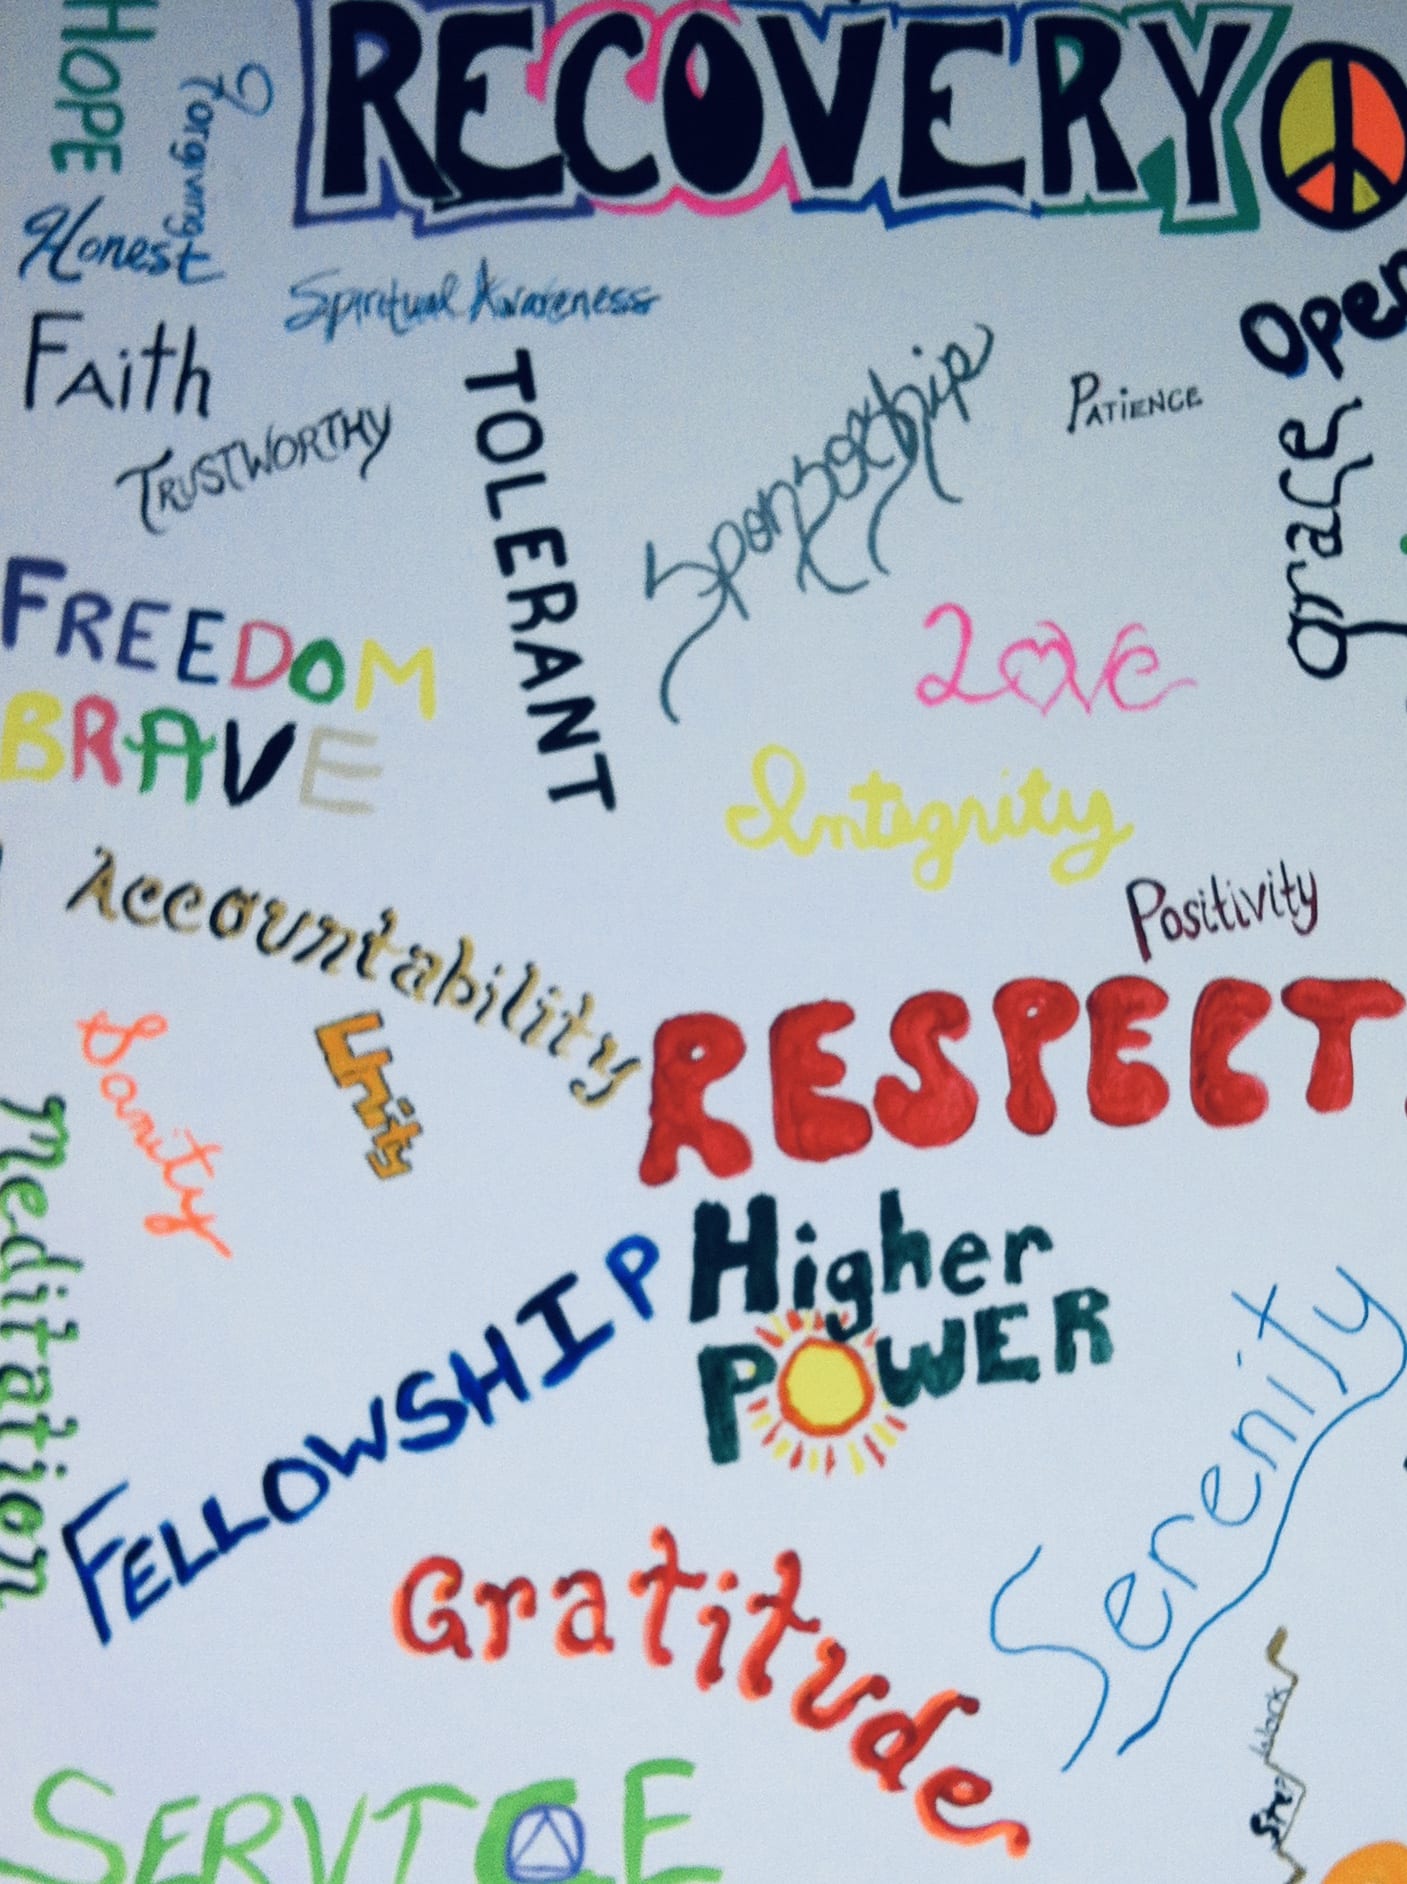 RECOVERY
HOPE
Forgiving
Honest
Spiritual Awareness
FAith
TRUSTWORTHY
TOLERANT
Sponsorship
PATIENCE
Open
grace
FREEDOM
BRAVE
LOVE
Integrity
Positivity
Accountability
Sanity
Unity
RESPECT
Meditation
FELLOWSHIP
Higher
POWER
Serenity
Gratitude
Step Work
SERVICE